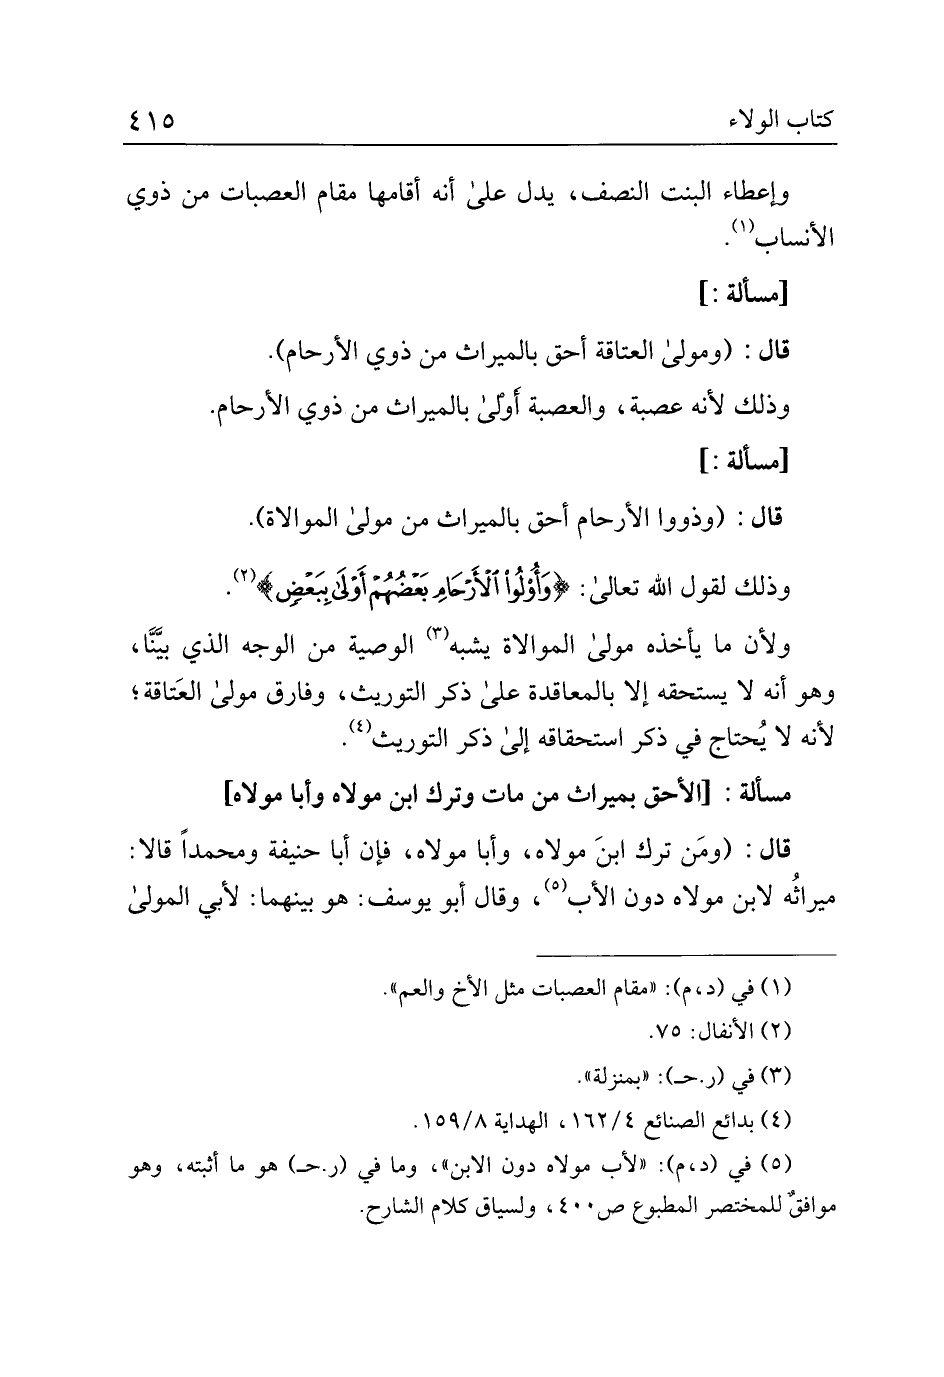 كتاب الولاء ٤١٥
وإعطاء البنت النصف، يدل علىٰ أنه أقامها مقام العصبات من ذوي
الأنساب(١).
[مسألة :]
قال : (ومولىٰ العتاقة أحق بالميراث من ذوي الأرحام).
وذلك لأنه عصبة، والعصبة أَوْلىٰ بالميراث من ذوي الأرحام.
[مسألة :]
قال : (وذووا الأرحام أحق بالميراث من مولىٰ الموالاة).
وذلك لقول الله تعالىٰ: ﴿وَأُوْلُواْ ٱلْأَرْحَامِ بَعْضُهُمْ أَوْلَىٰ بِبَعْضٍ﴾(٢).
ولأن ما يأخذه مولىٰ الموالاة يشبه(٣) الوصية من الوجه الذي بيَّنَّا،
وهو أنه لا يستحقه إلا بالمعاقدة علىٰ ذكر التوريث، وفارق مولىٰ العَتاقة؛
لأنه لا يُحتاج في ذكر استحقاقه إلىٰ ذكر التوريث(٤).
مسألة : [الأحق بميراث من مات وترك ابن مولاه وأبا مولاه]
قال : (ومَن ترك ابنَ مولاه، وأبا مولاه، فإن أبا حنيفة ومحمداً قالا:
ميراثُه لابن مولاه دون الأب(٥)، وقال أبو يوسف: هو بينهما: لأبي المولىٰ
(١) في (د،م): «مقام العصبات مثل الأخ والعم».
(٢) الأنفال: ٧٥.
(٣) في (ر.حـ): «بمنزلة».
(٤) بدائع الصنائع ١٦٢/٤، الهداية ١٥٩/٨.
(٥) في (د،م): «لأب مولاه دون الابن»، وما في (ر.حـ) هو ما أثبته، وهو
موافقٌ للمختصر المطبوع ص٤٠٠، ولسياق كلام الشارح.